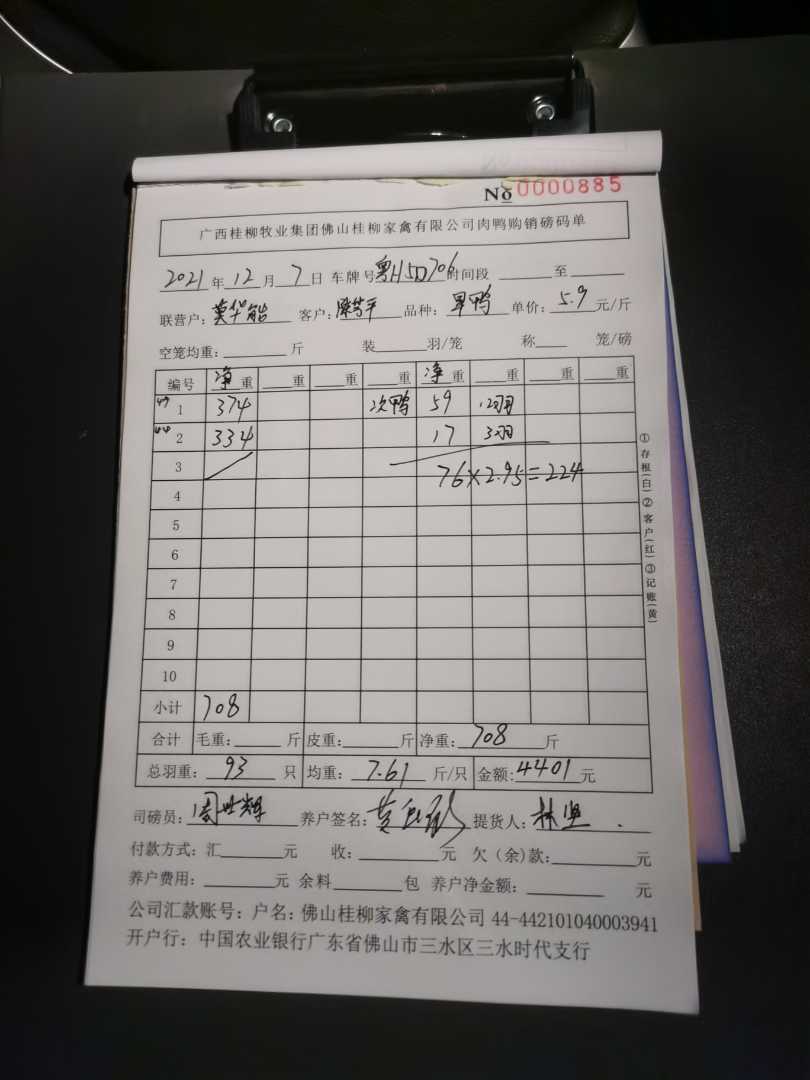 No 0000885
广西桂柳牧业集团佛山桂柳家禽有限公司肉鸭购销磅码单
2021年12月7日 车牌号粤H5D706时间段______至______
联营户：莫华能 客户： 品种：旱鸭 单价：5.9元/斤
空笼均重：______斤 装______羽/笼 称____笼/磅
编号 净重 ____重 ____重 ____重 净重 ____重 ____重 ____重
49 1 374 次鸭 59 12羽
44 2 334 17 3羽
3 76×2.95=224
4
5
6
7
8
9
10
小计 708
合计 毛重：______斤 皮重：______斤 净重：708斤
总羽重：93只 均重：7.61斤/只 金额：4401元
司磅员：周世辉 养户签名： 提货人：林坚
付款方式：汇______元 收：______元 欠（余）款：______元
养户费用：______元 余料______包 养户净金额：______元
公司汇款账号：户名：佛山桂柳家禽有限公司 44-442101040003941
开户行：中国农业银行广东省佛山市三水区三水时代支行
①存根(白)②客户(红)③记账(黄)